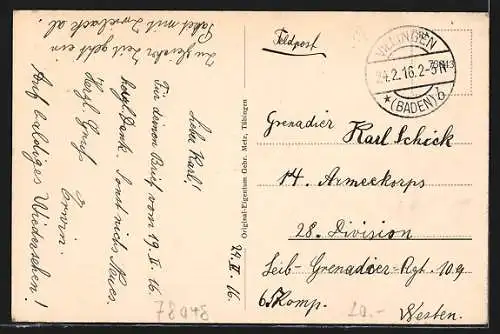 Feldpost
VILLINGEN
24.2.16.2-3N
* (BADEN) b
Grenadier
Karl Schick
14. Armeekorps
28. Division
Leib-Grenadier-Rgt. 109
6. Komp.
Westen.
20.-
Original-Eigentum Gebr. Metz, Tübingen
24.II.16
Liebe Karl!
Für deinen Brief vom 19.II.16
herzl. Dank. Sonst nichts Neues.
Herzl. Gruß
Erwin.
Auf baldiges Wiedersehen!
Zu gleicher Zeit geht ein
Paket mit Zwieback ab.